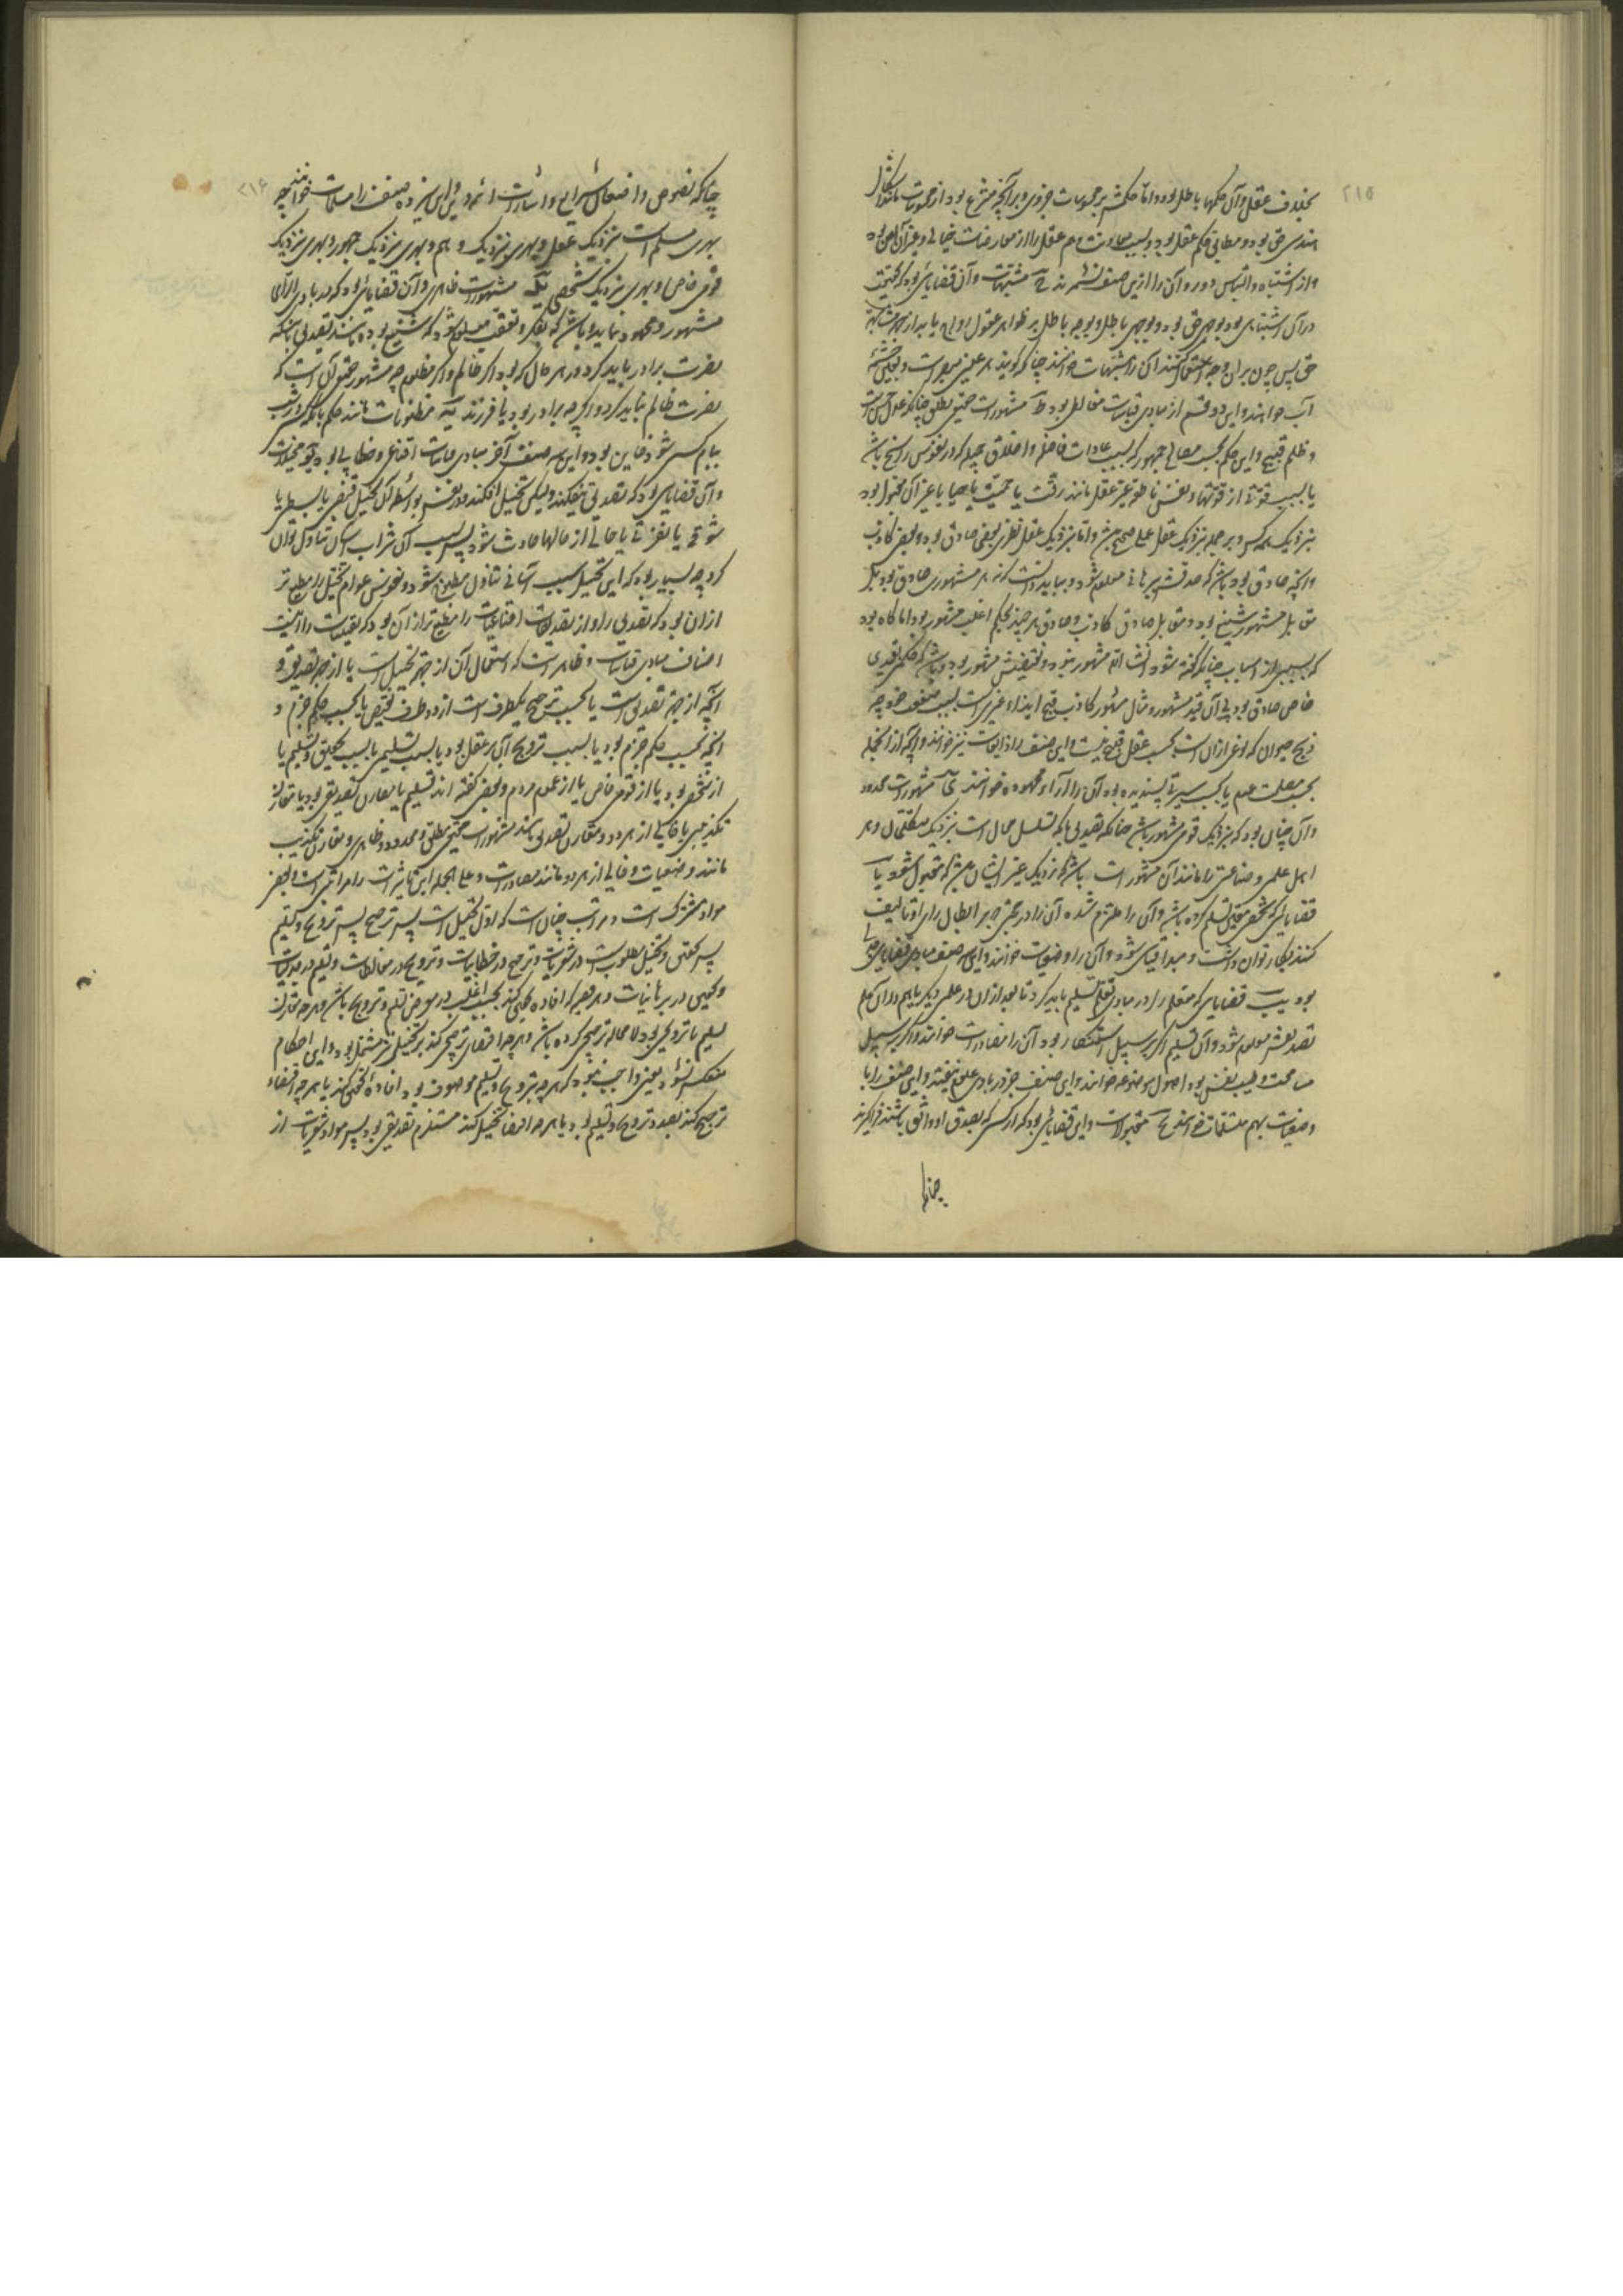 ٢١٥
بخلاف عقل و آن حکمها باطل بود و اما حکمش بر محسوسات جزوی و بر آنچه منتزع بود از محسوسات مانند اشکال
هندسی حق بود و مطابق حکم عقل بود و بسبب معاونت وهم عقل را از معارضات خیالی و غیر آن ایمن بود
و از اشتباه و التباس دور و آن را ازین صنف نشمرند مشبهات و آن قضایائی بود که بحقیقت
در آن اشتباهی بود بوجهی حق بود و بوجهی باطل و بوجه باطل بر ظواهر عقول اولی یابد از جهت مشابهت
حق پس چون بر آن وجه استعمال کنند آن را مشبهات خوانند چنانکه گویند هر عینی مبصر است و بعضی چشمه
آب خوانند و این دو قسم از مبادی قیاسات مغالطی بود مشهورات حقیقی مطلق چنانکه عدل حسن است
و ظلم قبیح و این حکم بحسب مصالح جمهور یا بسبب عادات فاضله و اخلاق جمیله که در نفوس راسخ باشد
یا بسبب قوتی از قوتهاء نفس ناطقه غیر عقل مانند رقت یا حمیت یا حیا یا غیر آن مقبول بود
نزدیک همه کس و بر جمله نزدیک عقل عملی صحیح باشد و اما نزدیک عقل نظری بعضی صادق بود و بعضی کاذب
و آنچه صادق بود باشد که صدقش ببرهانی معلوم شود و بباید دانست که نه هر مشهوری صادق بود بلکه
مقابل مشهور شنیع بود و مقابل صادق کاذب و صادق هر چند بحکم اغلب مشهور بود اما گاه بود
که بسببی از اسباب چنانکه گفته شود انشاء الله مشهور نبود و نقیضش مشهور بود و باشد که حکمی بقیدی
خاص صادق بود و بی آن قید مشهور و مثال مشهور کاذب قبح ایذاء غیر است بسبب منفعت خود چه
ذبح حیوان که نوعی از آن است بحسب عقل قبیح نیست و این صنف را ذایعات نیز خوانند و آنچه از آنجمله
بحسب مصلحت عموم یا بحسب سیرتی پسندیده بود آن را آراء محموده خوانند مشهورات محدود
و آن چنان بود که نزدیک قومی مشهور باشد چنانکه تصدیق بآنکه تسلسل محال است نزدیک متکلمان و هر
اهل علمی و صناعتی را مانند آن مشهورات باشد که نزدیک غیر ایشان همچنین که مقبول نشود
قضایائی که شخصی بعینه تسلیم کرده باشد و آن را ملتزم شده آن را در بحثی جز بر ابطال رای او تالیف
کنند بکار توان داشت و مبدا قیاس شود و آن را وضعیات خوانند و این صنف مبادی قیاسات جدلی
بود قضایائی که متعلم را در مبادی تعلم تسلیم باید کرد تا بعد از آن در علمی دیگر یا هم در آن علم
تصدیقش معلوم شود و آن تسلیم اگر بر سبیل استنکار بود آن را مصادرات خوانند و اگر بر سبیل
مسامحت و طیب نفس بود اصول موضوعه خوانند و این صنف جز در مبادی علوم نیفتد و این صنف را با
وضعیات بهم مسلمات خوانند مقبولات و این قضایائی بود که از کسی که بصدق او واثق باشند فرا گیرند
چنانکه
٢١٦
چنانکه نصوص و اضعال شرایع و اشارات ائمه دین و این سیزده صنف را مسلمات خوانند چه
بهری مسلم است نزدیک عقل و بهری نزدیک وهم و بهری نزدیک جمهور و بهری نزدیک
قومی خاص و بهری نزدیک شخصی مشهورات ظاهری و آن قضایائی بود که در بادی الرای
مشهور و محمود نماید و باشد که بتفکر و تعقب معلوم شود که شنیع بوده مانند تصدیق بآنکه
نصرت برادر باید کرد در هر حال که بود اگر ظالم و اگر مظلوم چه مشهور حقیقی آن است که
نصرت ظالم نباید کرد و اگر چه برادر بود یا فرزند مظنونات مانند حکم بآنکه هر که در شب
ببام کسی شود خاین بود و این سه صنف آخر مبادی قیاسات اقناعی و خطابی بود مخیلات
و آن قضایائی بود که تصدیقی نیفکند ولیکن تخییلی افکند و در نفس بواسطه آن تخییل قبضی یا بسطی یا
شوقی یا نفرتی یا حالی از حالها حادث شود پس بسبب آن شراب آسان تناول توان
کرد چه بسیار بود که این تخییل سبب آسانی تناول مطبوخ شود و نفوس عوام تخییل را مطیع تر
از آن بود که تصدیق را و از تصدیقات اقناعیات را مطیع تر از آن بود که یقینیات را اینست
اصناف مبادی قیاسات و ظاهر است که استعمال آن از جهت تخییل است یا از جهت تصدیق و
آنچه از جهت تصدیق است یا بحسب ترجیح یکطرف است از دو طرف نقیض یا بحسب حکم جزم و
آنچه بحسب حکم جزم بود یا بسبب ترویج آن بر عقل بود یا بسبب تسلیمی یا بسبب تحقیق و تسلیم یا
از شخصی بود یا از قومی خاص یا از عموم مردم و بعضی گفته اند تسلیم یا مقارن تصدیقی بود یا مقارن
تکذیبی یا خالی از هر دو و مقارن تصدیق مانند مشهورات حقیقی مطلق و محدود و ظاهری و مقارن تکذیب
مانند وضعیات و خالی از هر دو مانند مصادرات و علی الجمله این تاثیرات را مراتبی است و بعضی
مواد مشترک است و مراتب چنان است که اول تخییل است پس ترجیح پس ترویج و تسلیم
پس تحقیق و تخییل مطلوب است در شعریات و ترجیح در خطابیات و ترویج در مغالطات و تسلیم در جدلیات
و تحقیق در برهانیات و هر قضیه که افاده تحقیق کند بحسب اغلب در معرض تسلیم و ترویج باشد و هر چه مقارن
تسلیم یا ترویجی بود لا محاله ترجیحی کرده باشد و هر چه اقتضاء ترجیحی کند بر تخییلی نیز مشتمل بود و این احکام
منعکس نشود یعنی واجب نبود که هر چه بترویج و تسلیم موصوف بود افادۀ تحقیق کند یا هر چه اقتضاء
ترجیح کند بصدد ترویج و تسلیم بود یا هر چه اقتضاء تخییل کند مستلزم تصدیقی بود پس مواد شعریات از